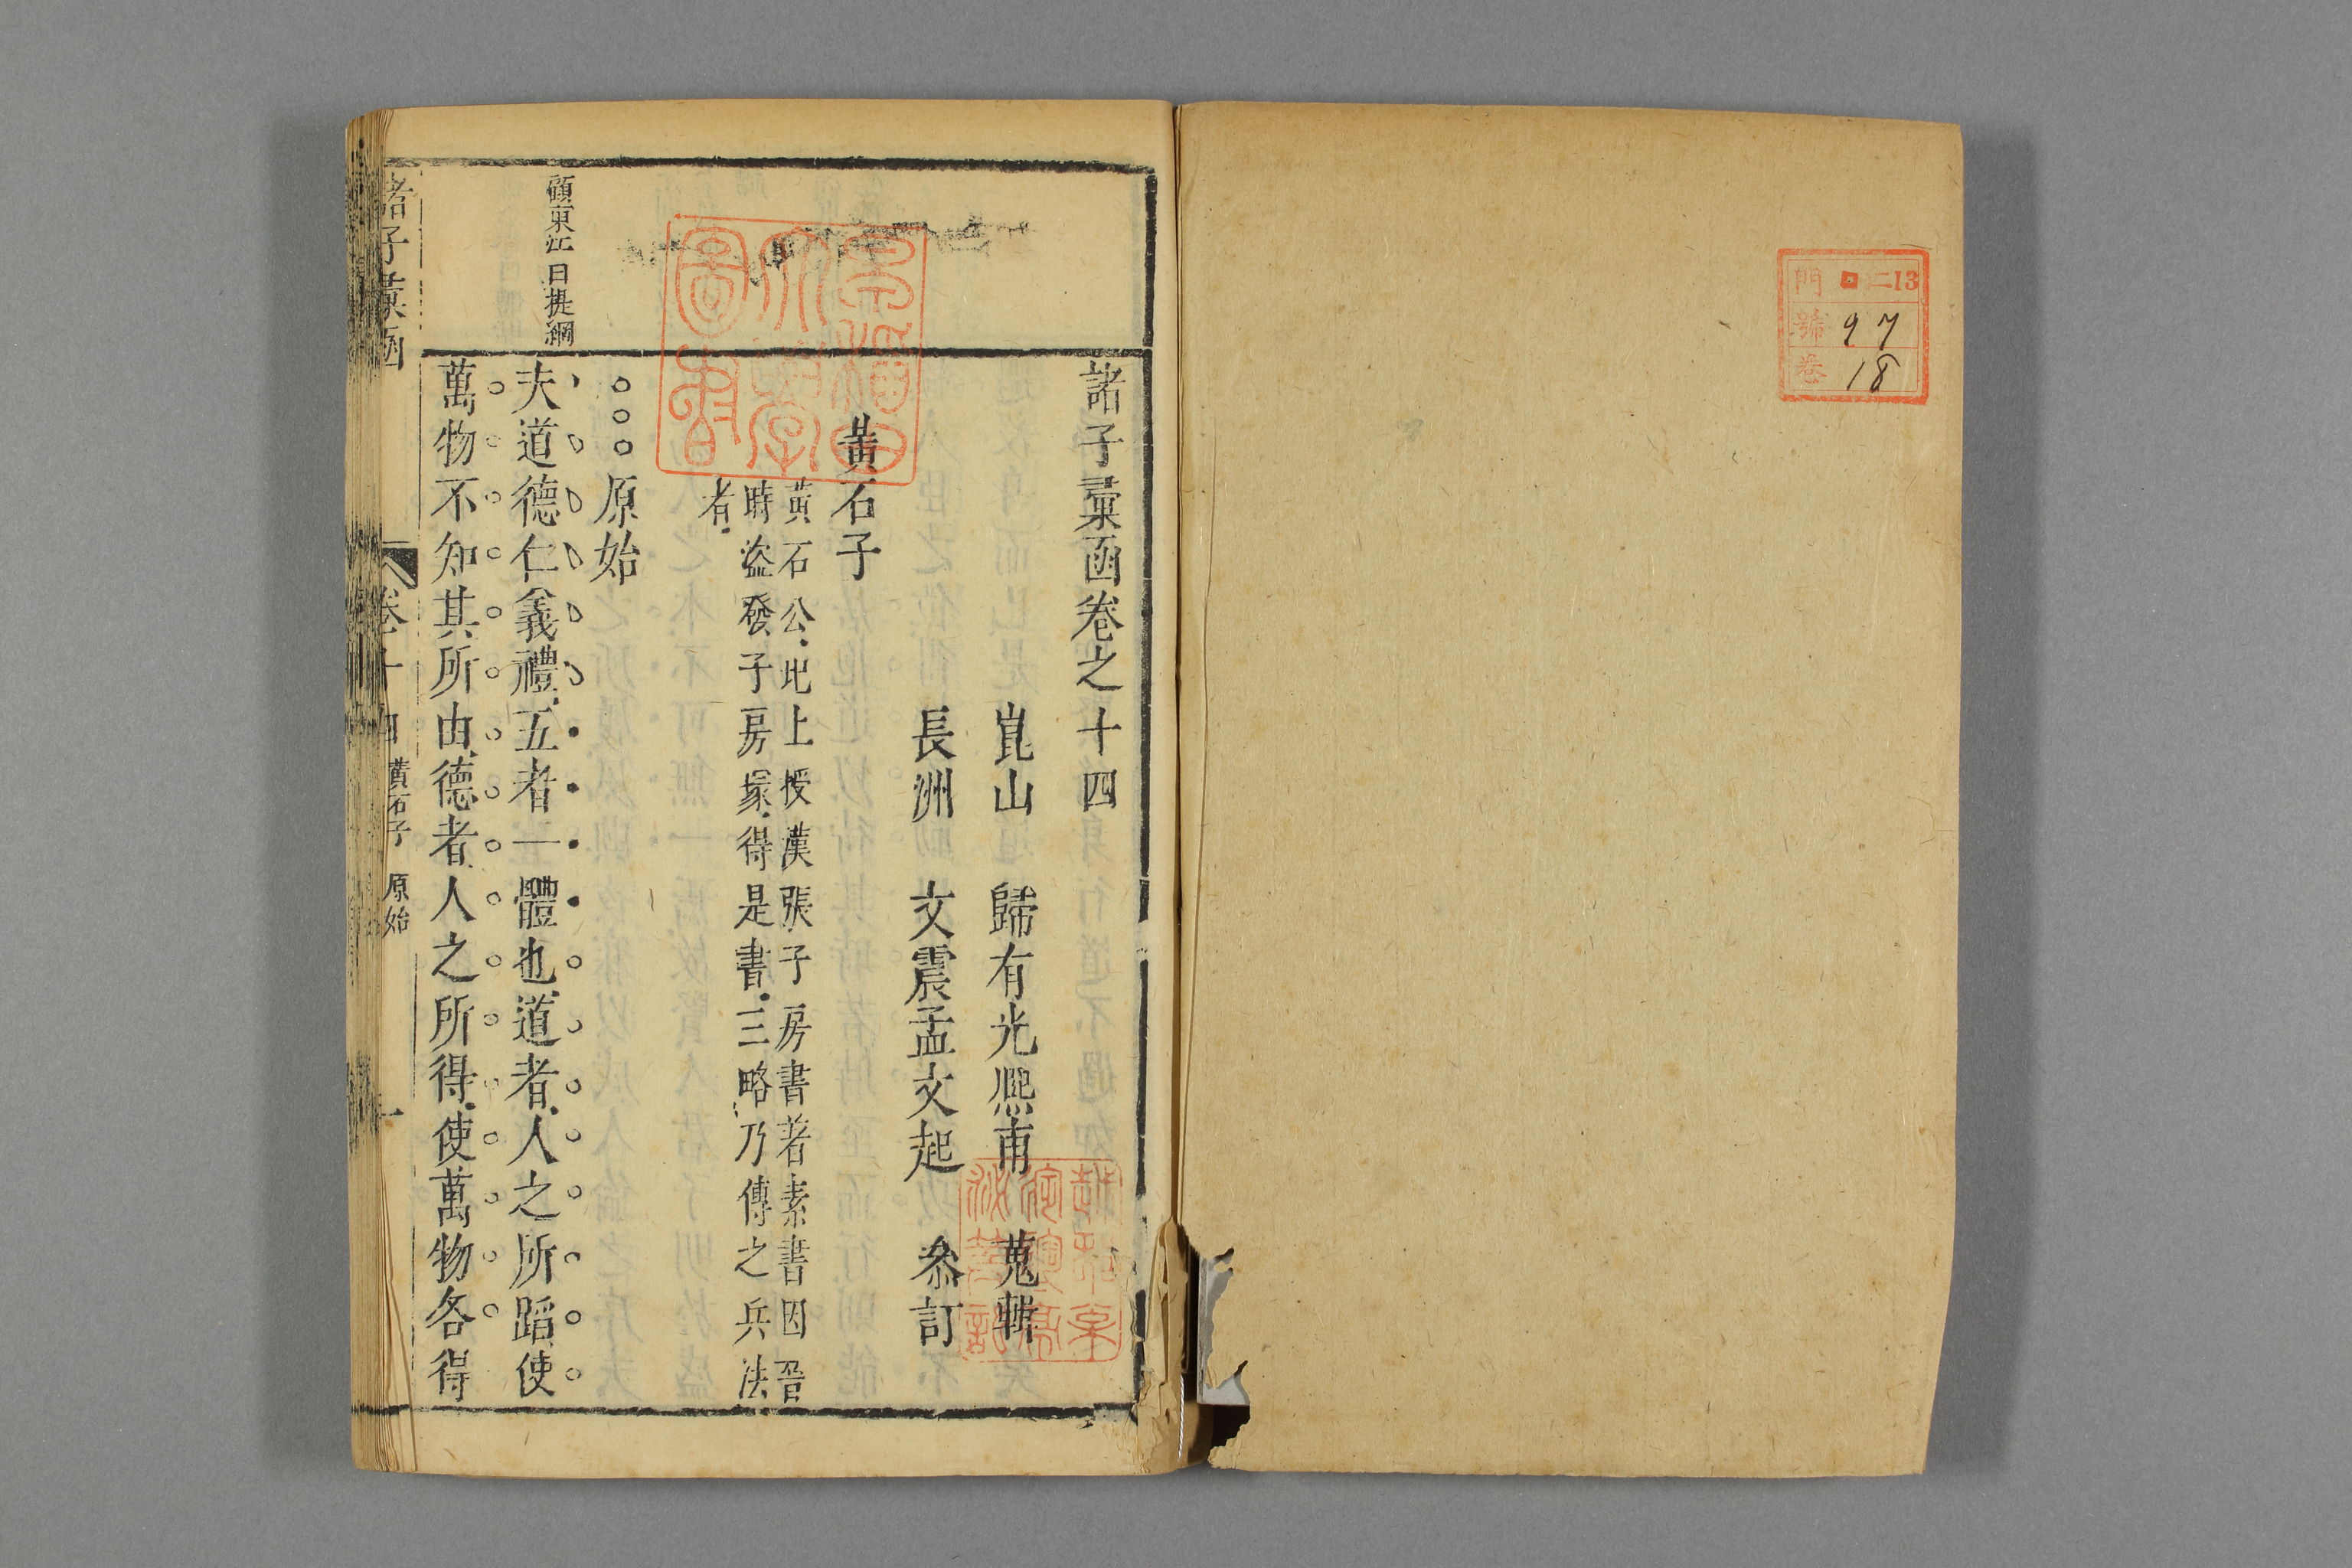 門 ロ 二13
號 97
卷 18
諸子彙函卷之十四
崑山 歸有光熈甫 蒐輯
長洲 文震孟文起 叅訂
黃石子
黃石公圯上授漢張子房書著素書因晉
時盜發子房冢得是書三略乃傳之兵法
者
早稻田大學圖書
原始
顧東江曰提綱
夫道德仁義禮五者一體也道者人之所蹈使
萬物不知其所由德者人之所得使萬物各得
諸子彙函 卷十四 黃石子 原始 一